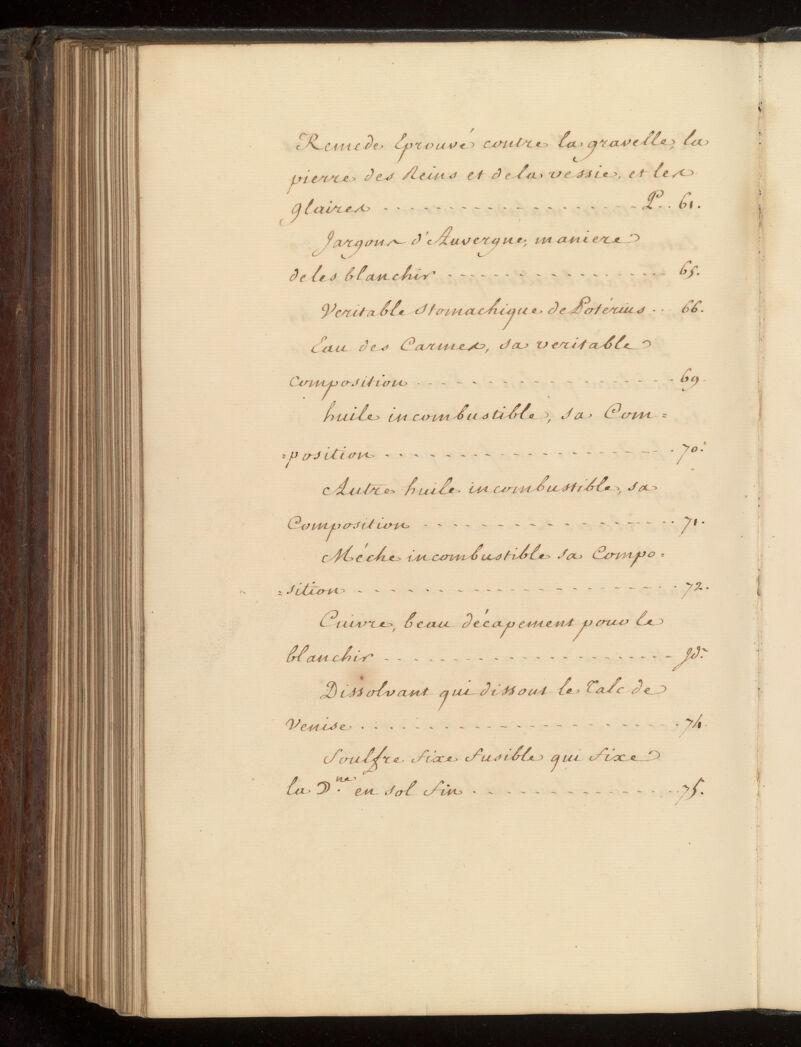 Remede Eprouvé contre la gravelle, la
pierre des Reins et de la vessie, et les
glaires - - - - - - - - - - - - - - - - P. . 61.
Jargons d'Auvergne, maniere
de les blanchir - - - - - - - - - - - - - - 65.
Veritable Stomachique de Potérius . . 66.
Eau des Carmes, sa veritable
Composition - - - - - - - - - - - - - - - - 69.
huile incombustible, sa Com=
=position - - - - - - - - - - - - - - - - 70.
Autre huile incombustible, sa
Composition - - - - - - - - - - - - - - - - 71.
Méche incombustible sa Compo=
=sition - - - - - - - - - - - - - - - - 72.
Cuivre, beau décapement pour le
blanchir - - - - - - - - - - - - - - - - Jd.
Dissolvant qui dissout le Talc de
Venise - - - - - - - - - - - - - - - - 74.
Soulfre fixe fusible qui fixe
la D.ne en sol fin - - - - - - - - - - - - 75.